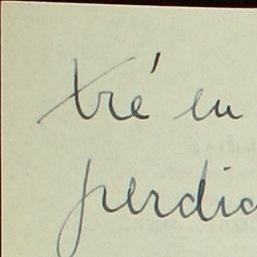 tré en
perdic